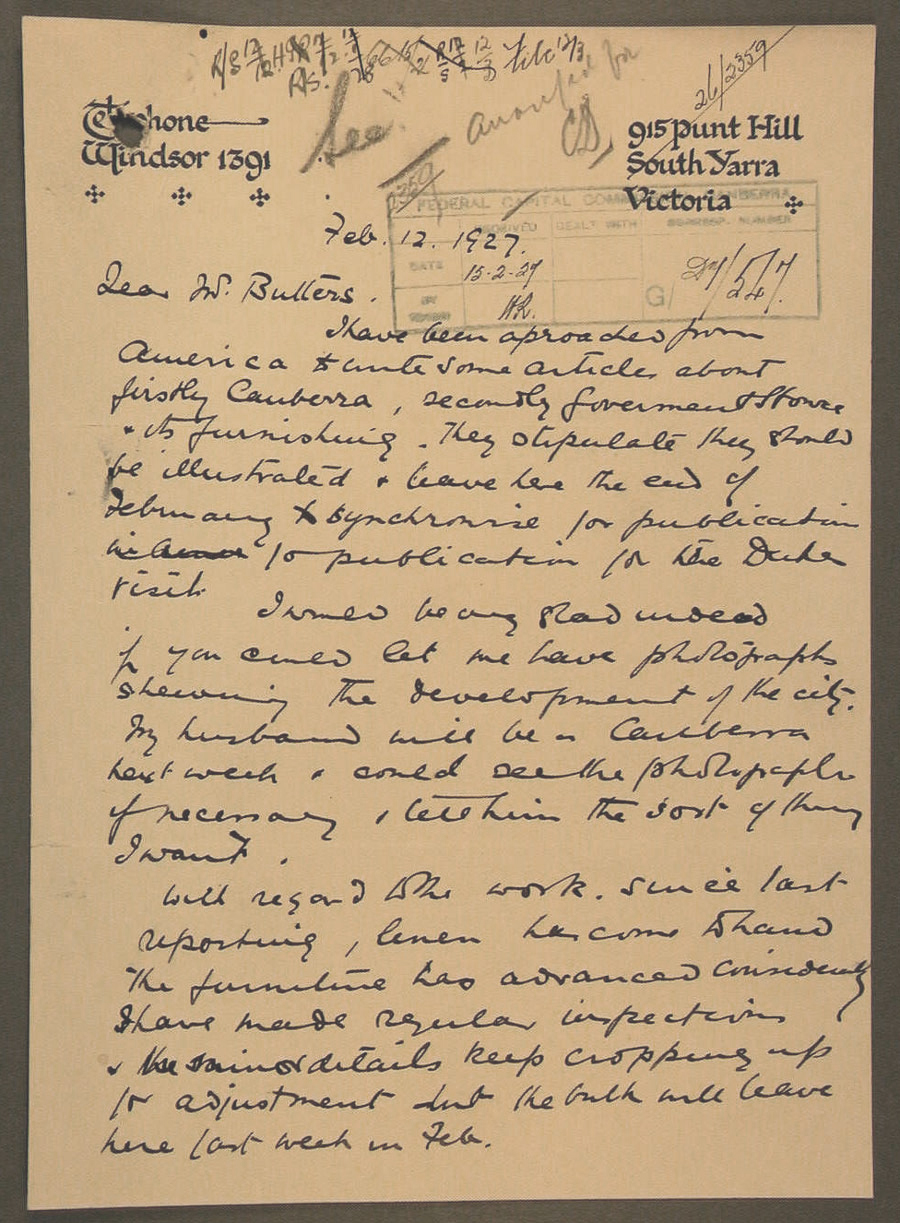 26/2359
See
Telephone
Windsor 1391
915 Punt Hill
South Yarra
Victoria
2359
FEDERAL CAPITAL COMMISSION, CANBERRA
RECEIVED DEALT WITH CORRESP. NUMBER
DATE 15-2-27
BY H.R.
G/
Feb. 12. 1927.
Dear Mr. Butters.
I have been aproached from
America to write some articles about
firstly Canberra, secondly Goverment House
& its furnishing. They stipulate they should
be illustrated & leave here the end of
February to synchronise for publication
for publication for the Duke
visit.
I would be very glad indeed
if you could let me have photographs
shewing the development of the city.
My husband will be in Canberra
next week & could see the photographs
if necessary & tell him the sort of thing
I want.
With regard to the work. Since last
reporting, linen has come to hand
The furniture has advanced considerably
I have made regular inspections
& the minor details keep cropping up
for adjustment but the bulk will leave
here last week in Feb.